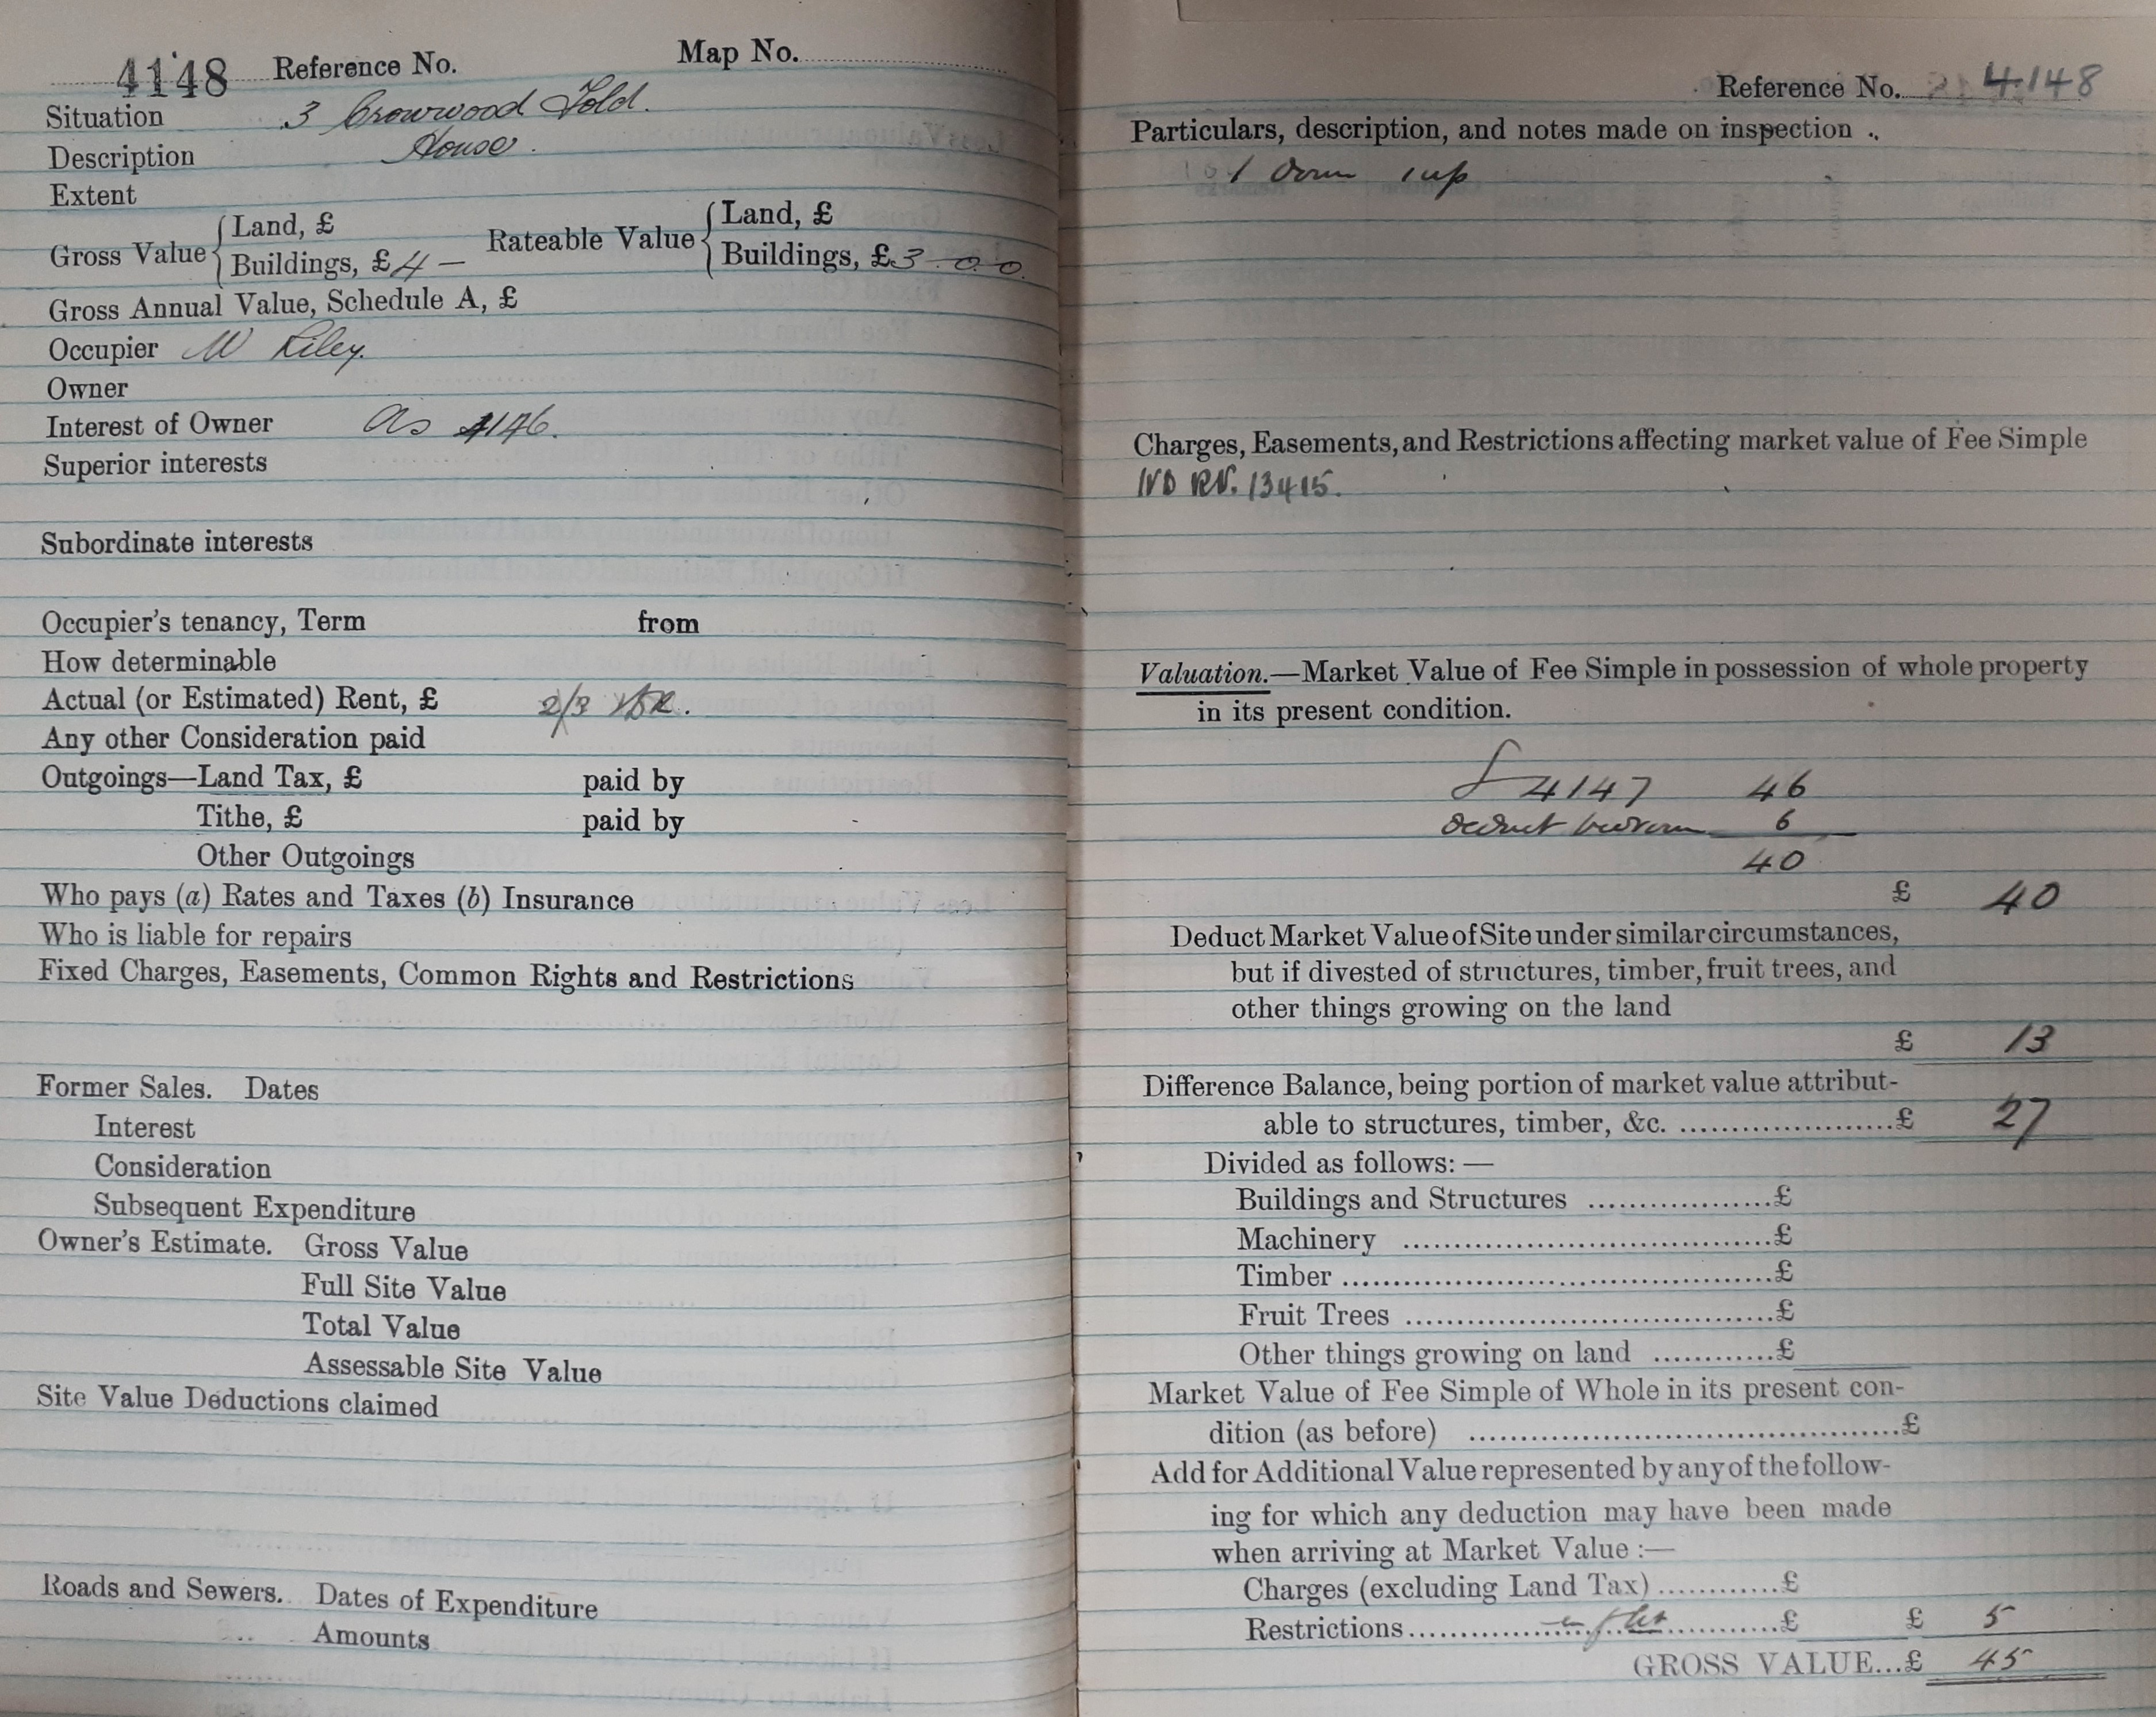 4148 Reference No. Map No.
Situation 3 Crowwood Fold.
Description House.
Extent
Gross Value { Land, £
Buildings, £ 4 — Rateable Value { Land, £
Buildings, £ 3 - 0 - 0
Gross Annual Value, Schedule A, £
Occupier W Riley.
Owner
Interest of Owner as 4146.
Superior interests
Subordinate interests
Occupier's tenancy, Term from
How determinable
Actual (or Estimated) Rent, £ 2/3
Any other Consideration paid
Outgoings—Land Tax, £ paid by
Tithe, £ paid by
Other Outgoings
Who pays (a) Rates and Taxes (b) Insurance
Who is liable for repairs
Fixed Charges, Easements, Common Rights and Restrictions
Former Sales. Dates
Interest
Consideration
Subsequent Expenditure
Owner's Estimate. Gross Value
Full Site Value
Total Value
Assessable Site Value
Site Value Deductions claimed
Roads and Sewers. Dates of Expenditure
Amounts
Reference No. 4148
Particulars, description, and notes made on inspection
1 down 1 up
Charges, Easements, and Restrictions affecting market value of Fee Simple
IVD RN. 13415.
Valuation.—Market Value of Fee Simple in possession of whole property
in its present condition.
£ 4147 46
deduct bedroom 6
40
£ 40
Deduct Market Value of Site under similar circumstances,
but if divested of structures, timber, fruit trees, and
other things growing on the land
£ 13
Difference Balance, being portion of market value attribut-
able to structures, timber, &c. ....................£ 27
Divided as follows: —
Buildings and Structures .................£
Machinery .................................£
Timber .......................................£
Fruit Trees .................................£
Other things growing on land ............£
Market Value of Fee Simple of Whole in its present con-
dition (as before) .......................................£
Add for Additional Value represented by any of the follow-
ing for which any deduction may have been made
when arriving at Market Value :—
Charges (excluding Land Tax) ............£
Restrictions .................................£ £ 5
GROSS VALUE...£ 45